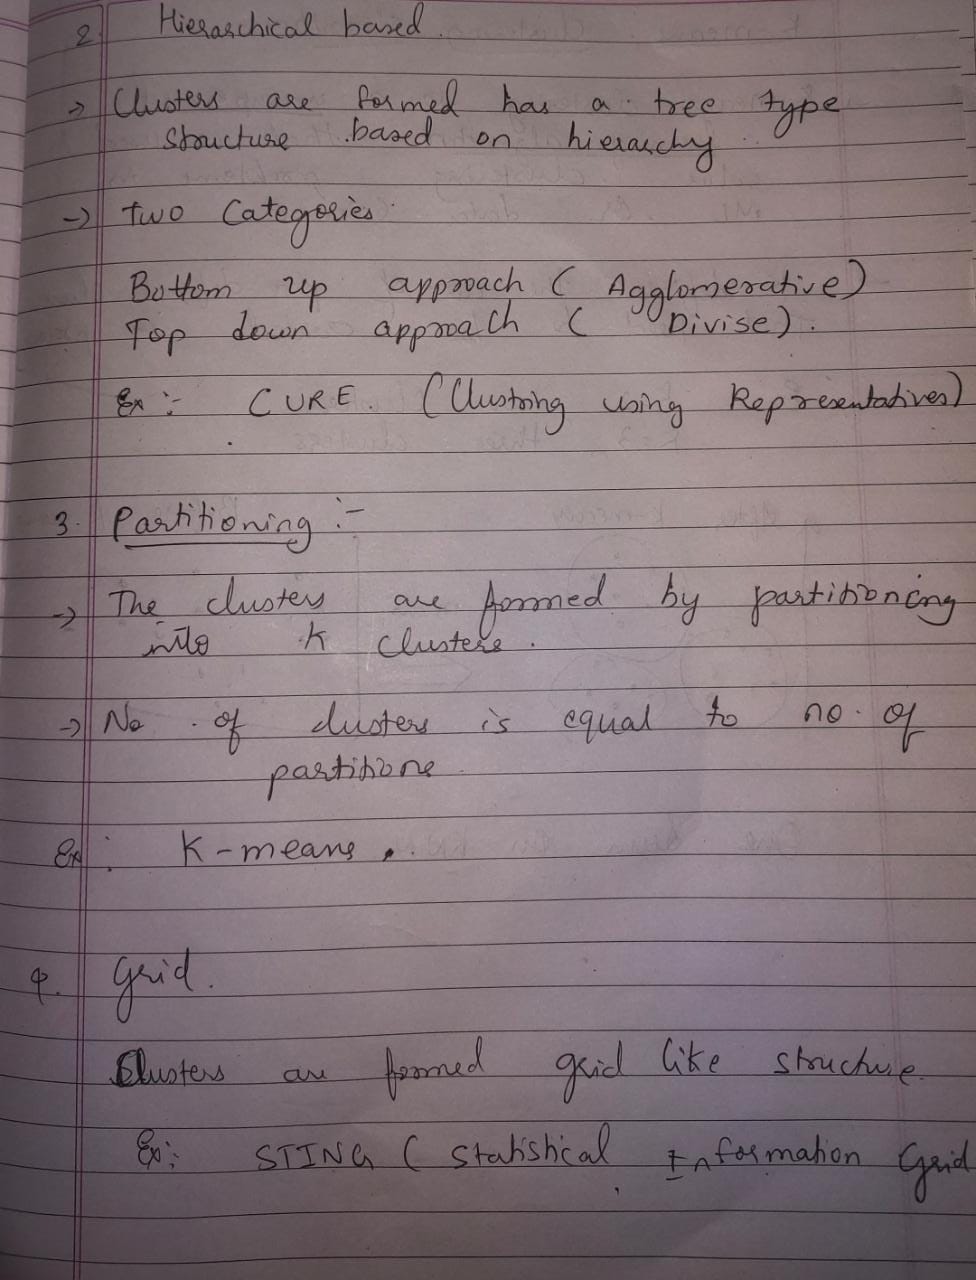 2. Hierarchical based.
→ Clusters are formed has a tree type
structure based on hierarchy
→ two Categories
Bottom up approach ( Agglomerative)
Top down approach ( Divise).
Ex :- CURE. (Clustring using Representatives)
3. Partitioning :-
→ The clusters are formed by partitioning
into K clusters.
→ No. of clusters is equal to no. of
partitions
Ex : K-means.
4. Grid.
Clusters are formed grid like structure.
Ex: STING ( Statistical Information Grid